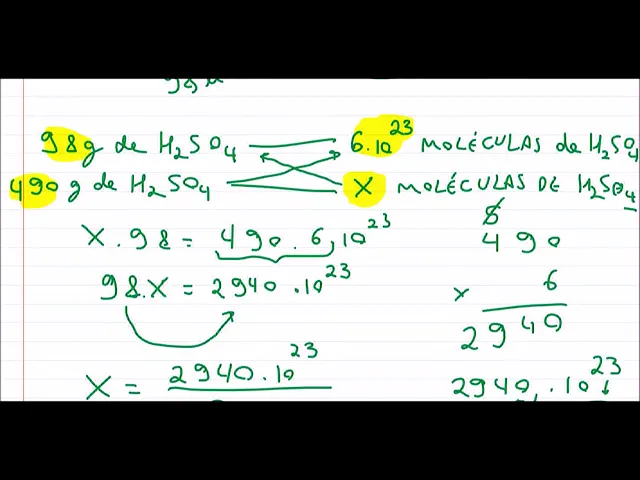 98g de H₂SO₄ 6.10²³ MOLÉCULAS de H₂SO₄
490 g de H₂SO₄ X MOLÉCULAS DE H₂SO₄
X.98 = 490.6,10²³
98.X = 2940.10²³
X = 2940.10²³
5
490
x 6
2940
2940, .10²³